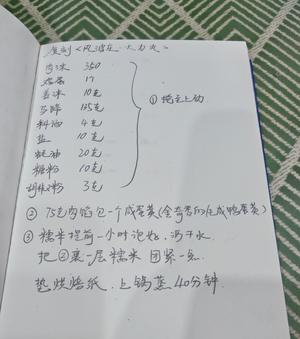 复刻<风波庄·大力丸>
肉沫 350
鸡蛋 1个
姜沫 10克
马蹄 135克
料酒 4克
盐 10克
蚝油 20克
糖粉 10克
胡椒粉 3克
①
② 75克肉馅包一个咸蛋黄(全奇香的咸鸭蛋黄)
③ 糯米提前一小时泡好,沥干水
把②裹一层糯米 团紧一点
垫烘焙纸,上锅蒸40分钟.